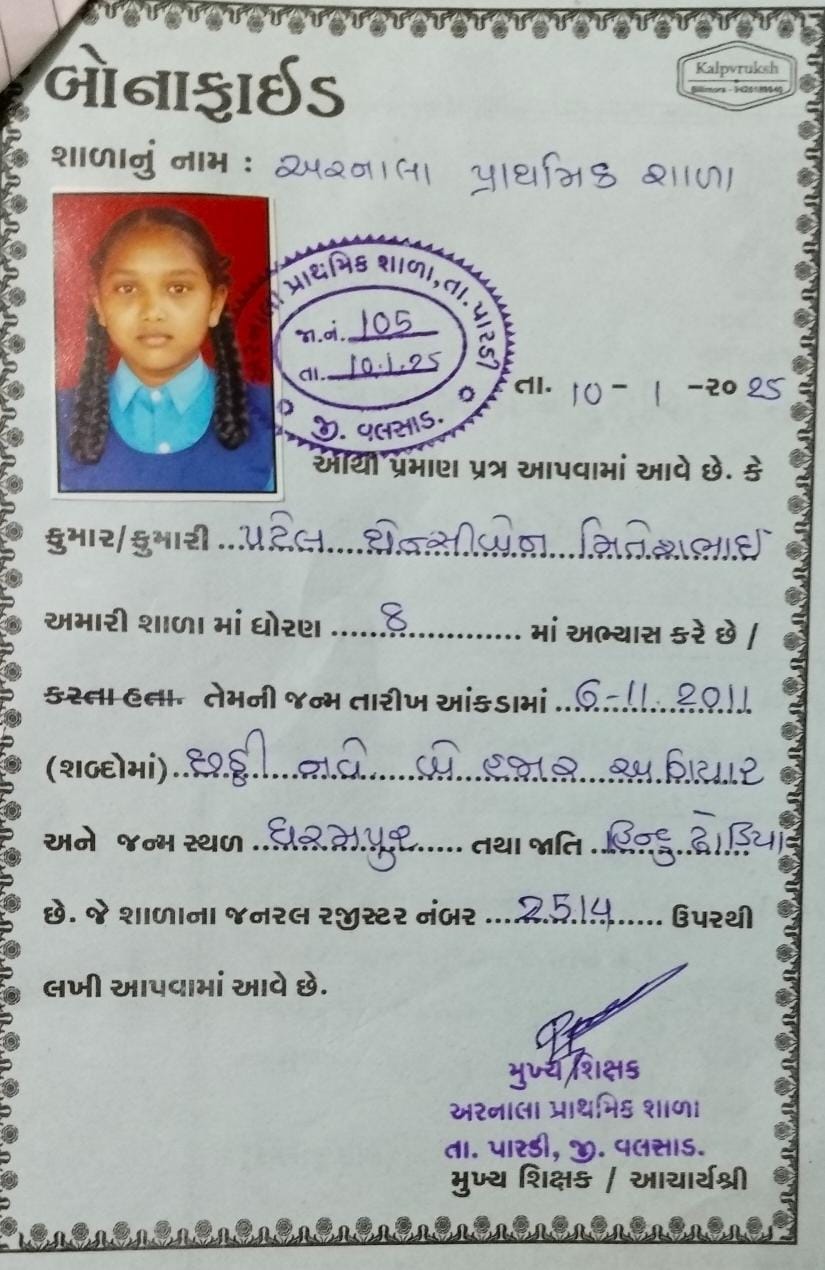 બોનાફાઈડ
Kalpvruksh
શાળાનું નામ : અરનાલા પ્રાથમિક શાળા
અરનાલા પ્રાથમિક શાળા, તા. પારડી
જા.નં. 105
તા. 10.1.25
જી. વલસાડ.
તા. 10 - 1 - ૨૦ 25
આથી પ્રમાણ પત્ર આપવામાં આવે છે. કે
કુમાર/કુમારી ...પટેલ.... મિતેશભાઈ
અમારી શાળા માં ધોરણ .......8.............. માં અભ્યાસ કરે છે /
કરતા હતા. તેમની જન્મ તારીખ આંકડામાં ..6-11.2011
(શબ્દોમાં)..છઠ્ઠી.... નવે.... બે હજાર અગિયાર
અને જન્મ સ્થળ ..ધરમપુર..... તથા જાતિ ..હિન્દુ ઢોડિયા
છે. જે શાળાના જનરલ રજીસ્ટર નંબર ....2514...... ઉપરથી
લખી આપવામાં આવે છે.
મુખ્ય શિક્ષક
અરનાલા પ્રાથમિક શાળા
તા. પારડી, જી. વલસાડ.
મુખ્ય શિક્ષક / આચાર્યશ્રી